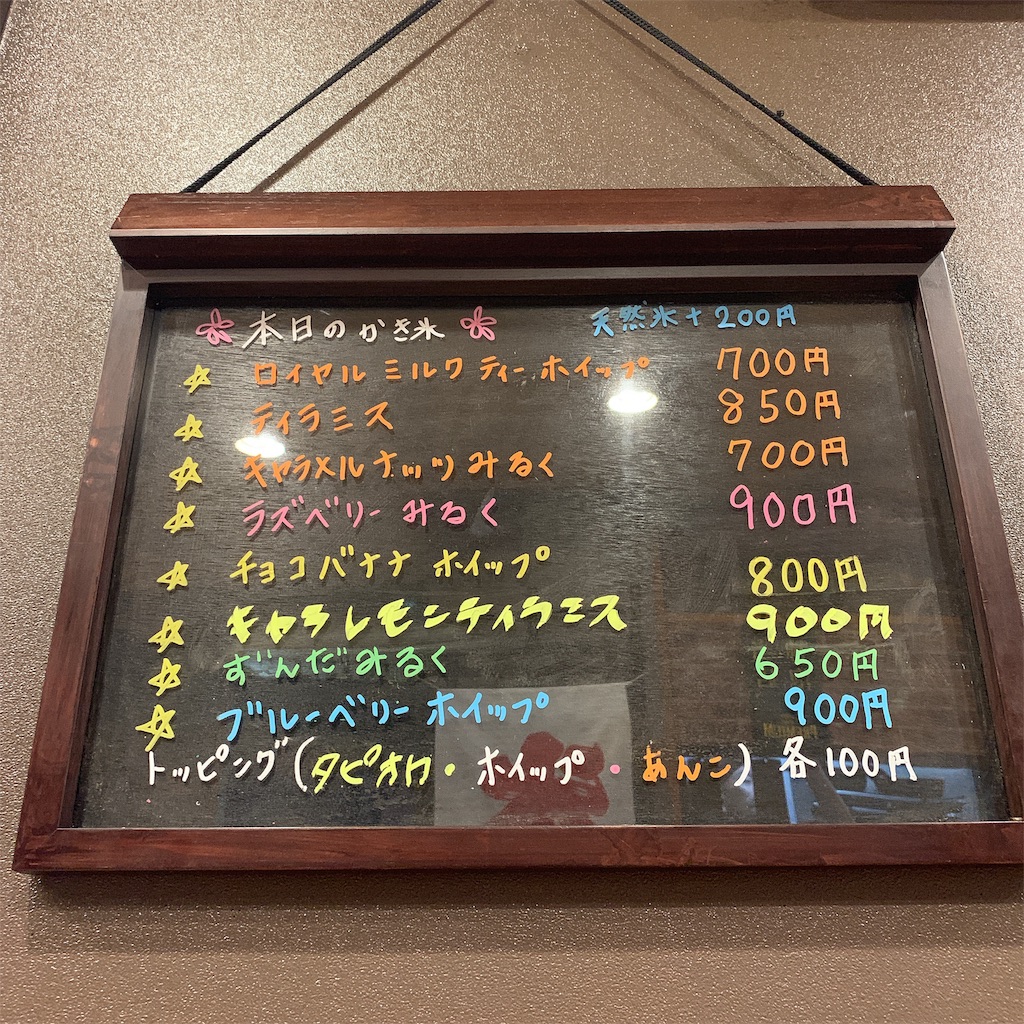 本日のかき氷 天然氷+200円
ロイヤルミルクティーホイップ 700円
ティラミス 850円
キャラメルナッツみるく 700円
ラズベリーみるく 900円
チョコバナナホイップ 800円
キャラレモンティラミス 900円
ずんだみるく 650円
ブルーベリーホイップ 900円
トッピング(タピオカ・ホイップ・あんこ)各100円